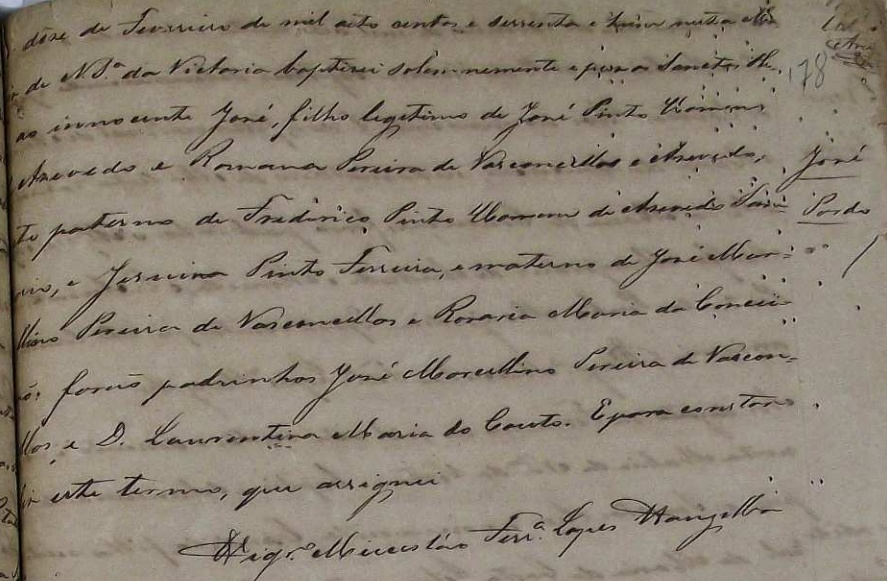 dose de Fevereiro de mil oito centos e sessenta e nesta
de N. S.ª da Victoria baptisei solemnemente e pus os Sanctos
ao innocente José, filho legitimo de José Pinto Homem
Azevedo e Romana Pereira de Vasconcellos e Azevedo,
to paterno de Frederico Pinto Homem de Azevedo
e Pinto Ferreira, e materno de José Mar=
llino Pereira de Vasconcellos e Rosaria Maria da Concei=
forão padrinhos José Marcellino Pereira de Vascon=
llos, e D. Laurentina Maria do Couto. E para constar
este termo, que assignei
Vigr.º Ferr.ª Lopes
178
José
Pardo